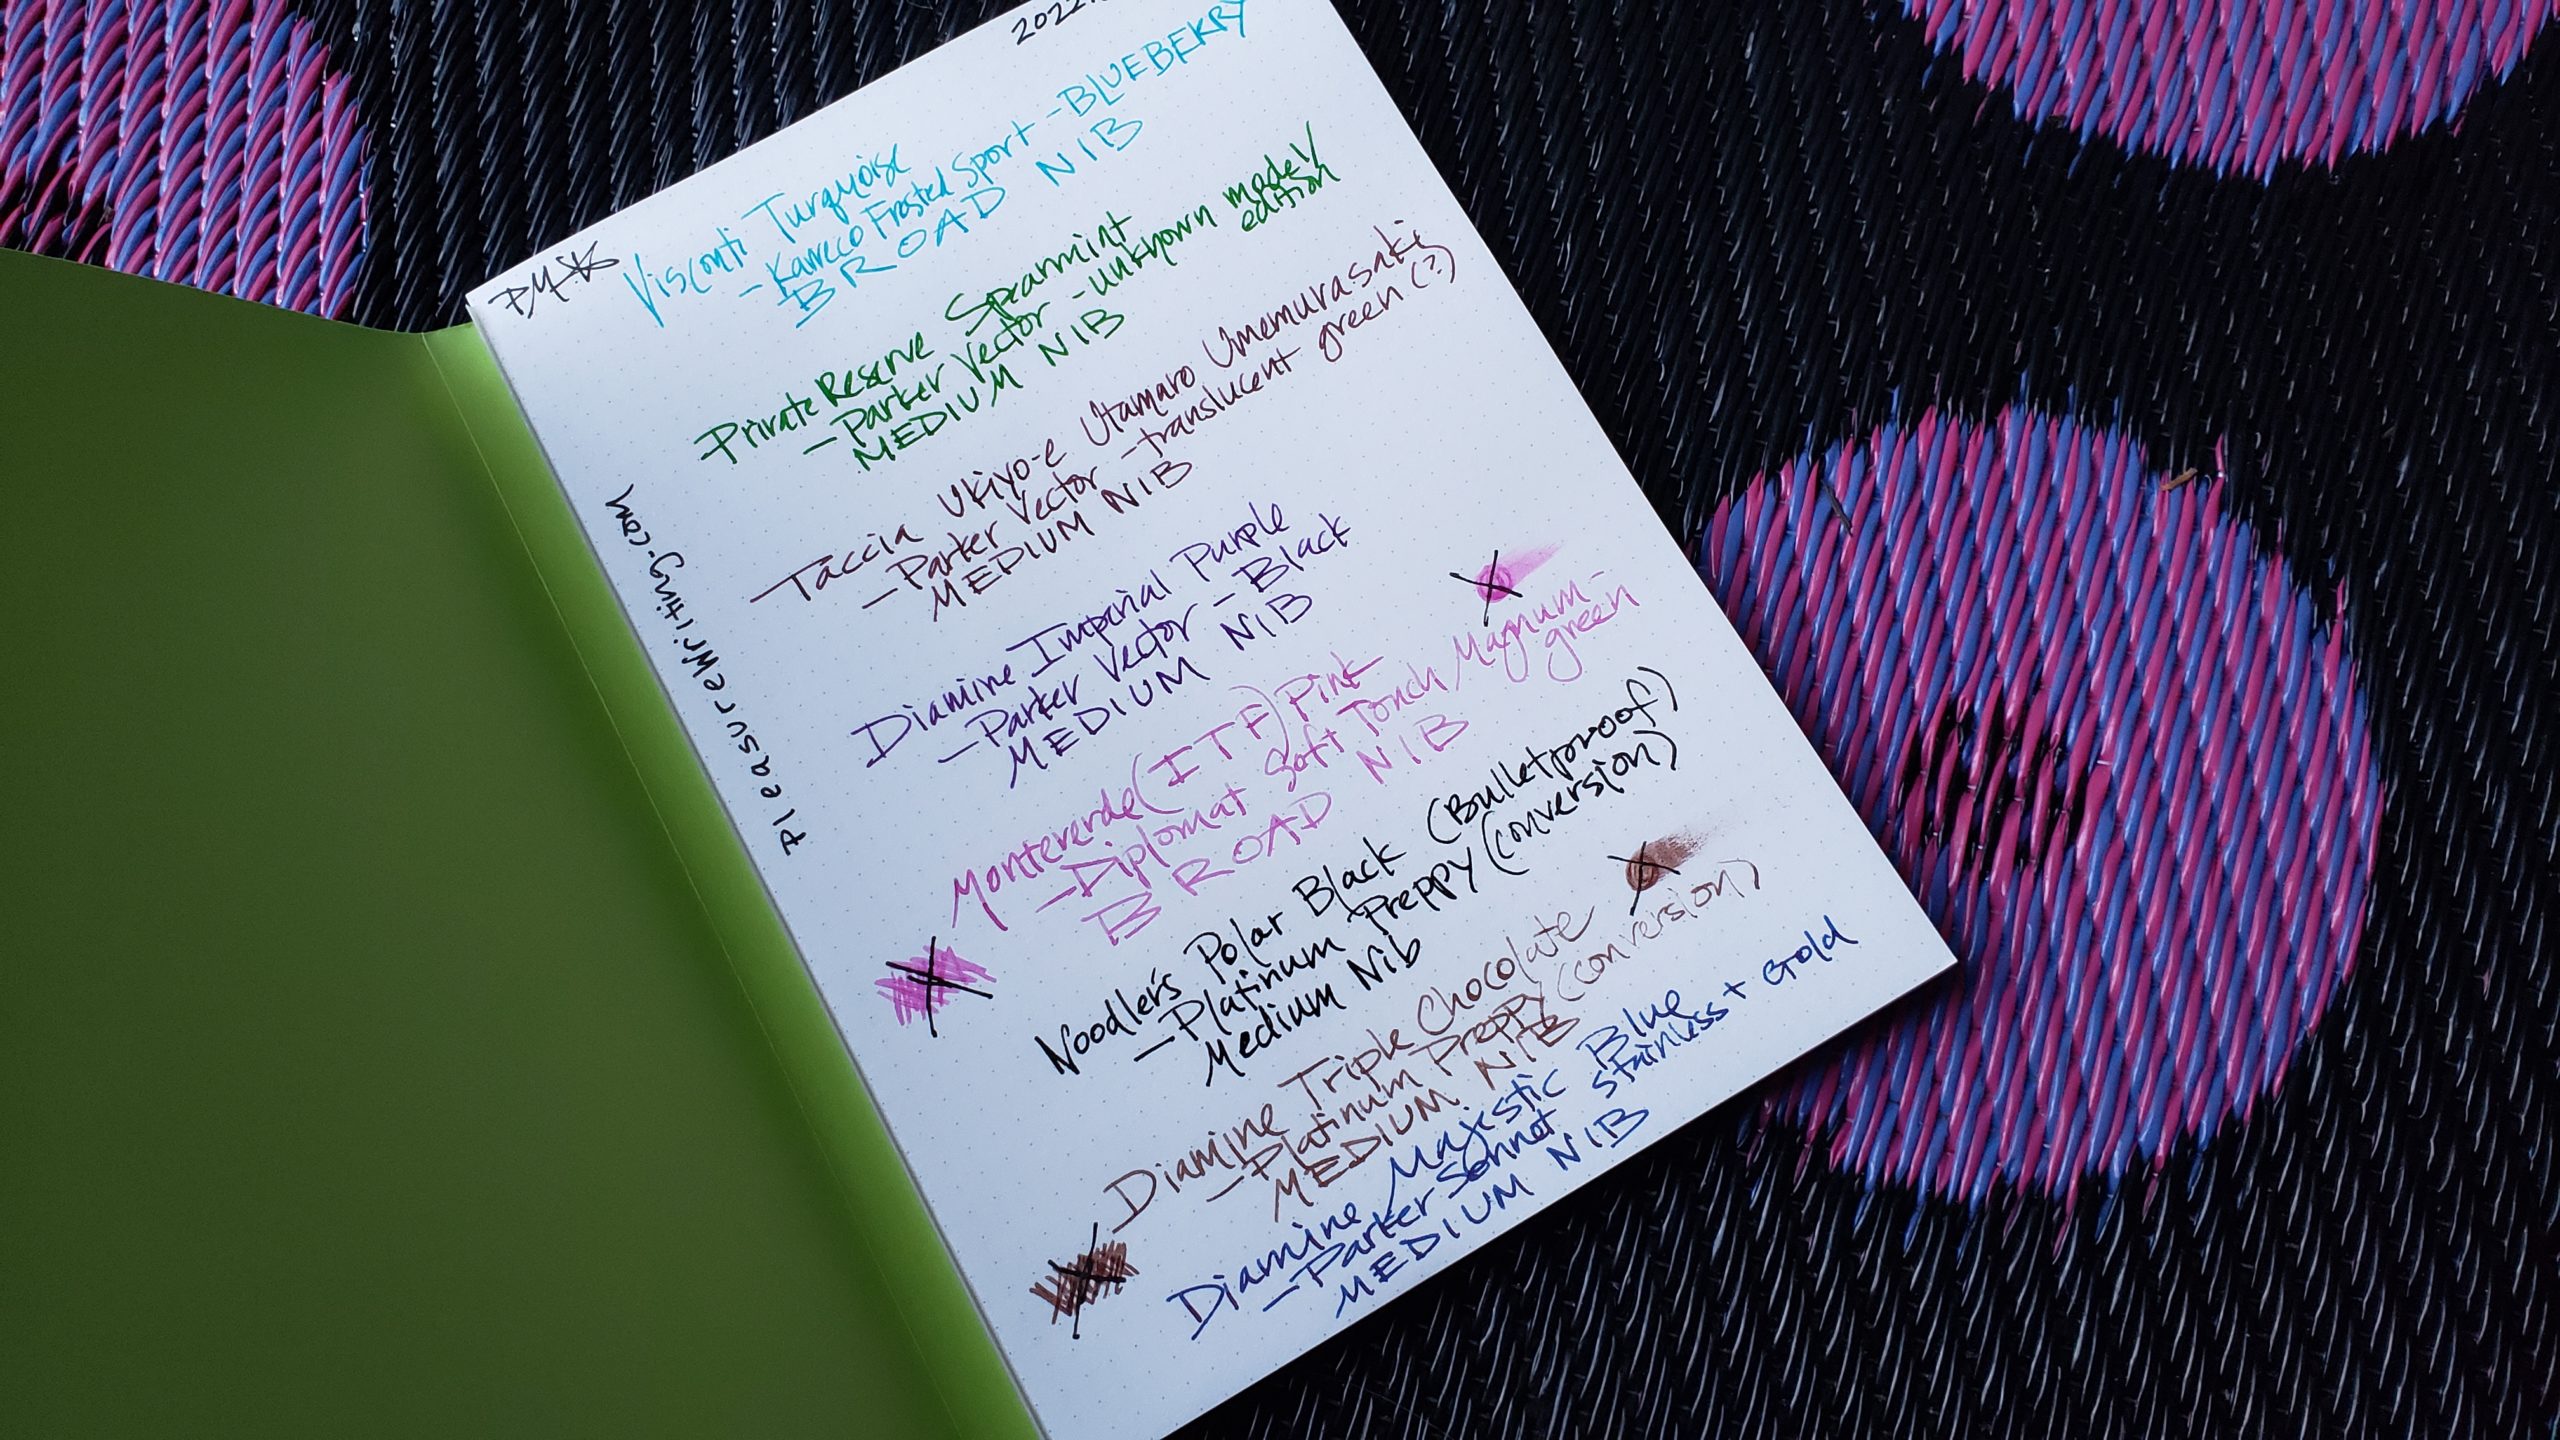 2022
Visconti Turquoise
- Kaweco Frosted Sport - BLUEBERRY
BROAD NIB
Private Reserve Spearmint
- Parker Vector - unknown model/
edition
MEDIUM NIB
Taccia Ukiyo-e Utamaro Umemurasaki
- Parker Vector - translucent green (?)
MEDIUM NIB
Diamine Imperial Purple
- Parker Vector - Black
MEDIUM NIB
Monteverde (ITF) Pink
- Diplomat Soft Touch Magnum -
green
BROAD NIB
Noodler's Polar Black (Bulletproof)
- Platinum Preppy (conversion)
Medium Nib
Diamine Triple Chocolate
- Platinum Preppy (conversion)
MEDIUM NIB
Diamine Majestic Blue
- Parker Sonnet Stainless + Gold
MEDIUM NIB
PleasureWriting.com